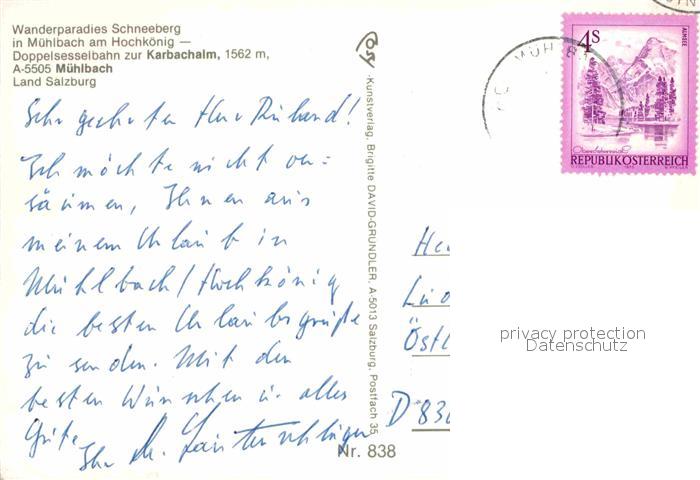 Wanderparadies Schneeberg
in Mühlbach am Hochkönig —
Doppelsesselbahn zur Karbachalm, 1562 m,
A-5505 Mühlbach
Land Salzburg
Sehr geehrter Herr Ruband!
Ich möchte nicht ver=
säumen, Ihnen aus
meinem Urlaub in
Mühlbach/Hochkönig
die besten Urlaubsgrüße
zu senden. Mit den
besten Wünschen u. alles
Gute
Ihr
Kunstverlag, Brigitte DAVID-GRUNDLER, A-5013 Salzburg, Postfach 35
Nr. 838
4S
ALMSEE
Oberösterreich
REPUBLIK ÖSTERREICH
MÜHLB
He
Östl
D 830
privacy protection
Datenschutz